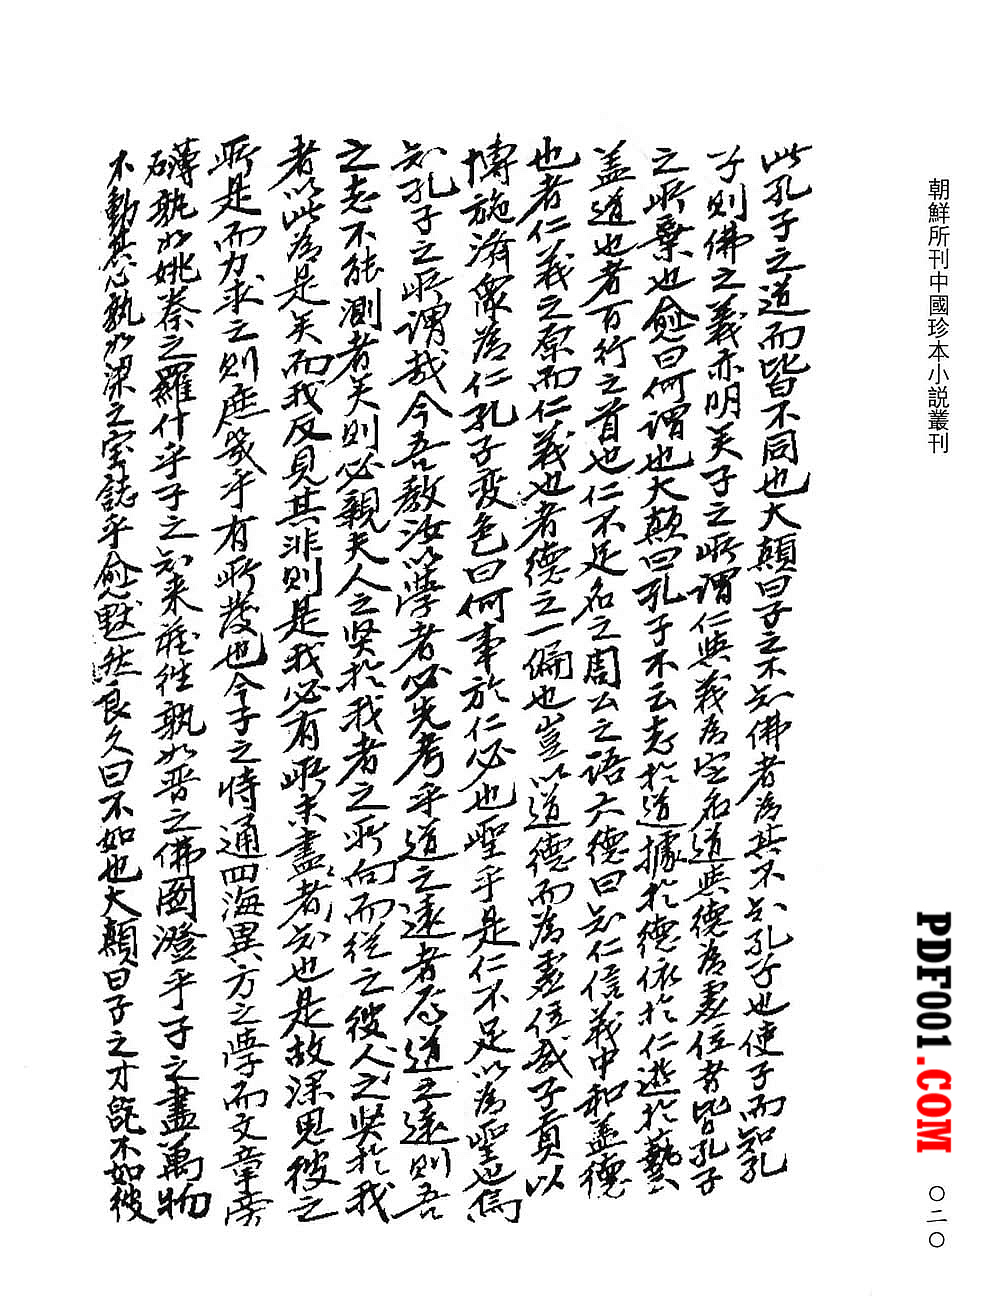 此孔子之道而皆不同也大顛曰子之不知佛者為其不知孔子也使子而知孔
子則佛之義亦明矣子之所謂仁與義為定名道與德為虛位者皆孔子
之所棄也愈曰何謂也大顛曰孔子不云志於道據於德依於仁遊於藝
盖道也者百行之首也仁不足名之周公之語六德曰知仁信義中和盖德
也者仁義之原而仁義也者德之一偏也豈以道德而為虛位哉子貢以
博施濟衆為仁孔子変色曰何事於仁必也聖乎是仁不足以為聖也焉
知孔子之所謂哉今吾教汝以學者必先考乎道之遠者焉道之遠則吾
之志不能測者矣則必親夫人之賢於我者之所向而從之彼人之賢於我
者以此為是矣而我反見其非則是我必有所未盡者知也是故深思彼之
所是而力求之則庶幾乎有所發也今子之恃通四海異方之學而文章旁
礴孰如姚秦之羅什乎子之知来藏徃孰如晋之佛圖澄乎子之盡萬物
不動其心孰如梁之宝誌乎愈默然良久曰不如也大顛曰子之才旣不如彼
朝鮮所刊中國珍本小説叢刊
PDF001.COM
〇二〇